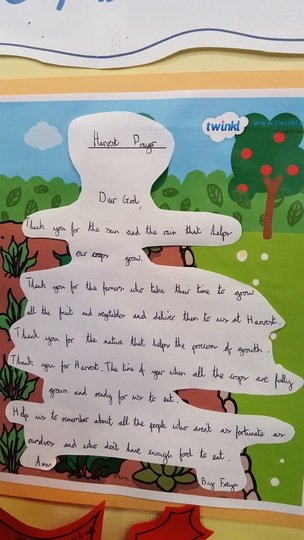 twinkl
www.twinkl
Harvest Prayer
Dear God,
Thank you for the sun and the rain that helps
our crops grow.
Thank you for the farmers who take their time to grow
all the fruit and vegetables and deliver them to us at Harvest.
Thank you for the nature that helps the process of growth.
Thank you for Harvest. The time of year when all the crops are fully
grown and ready for us to eat.
Help us to remember about all the people who arent as fortunate as
ourselves and who don't have enough food to eat.
Amen
By Freya